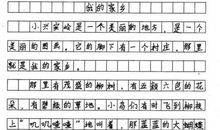 我的家乡
小兴安岭是一个美丽的地方,是一个
美丽的图画,它的脚下有一个村庄,那里
就是我的家乡。
那里有茂盛的柳树,有五颜六色的花
朵,有碧绿的草地,小鸟们有时飞到柳枝
上“叽叽喳喳”地叫着,那蓝蓝的大蝴蝶